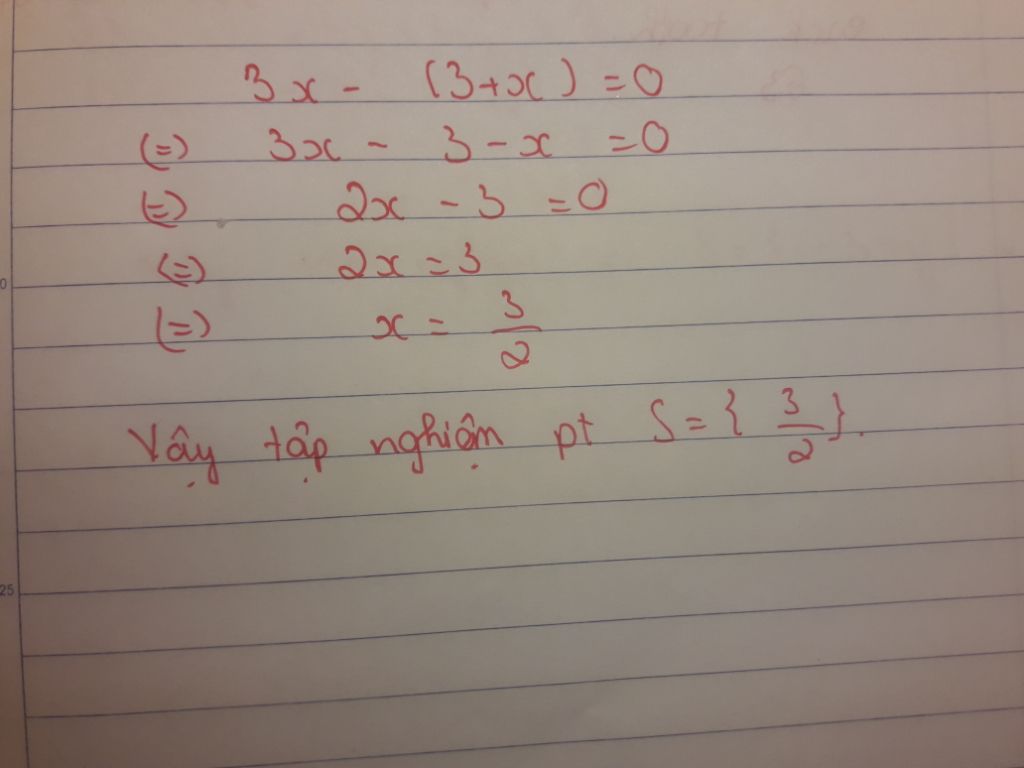 3x - (3+x) = 0
(=) 3x - 3 - x = 0
(=) 2x - 3 = 0
(=) 2x = 3
(=) x = 3/2
Vậy tập nghiệm pt S = { 3/2 }.
25